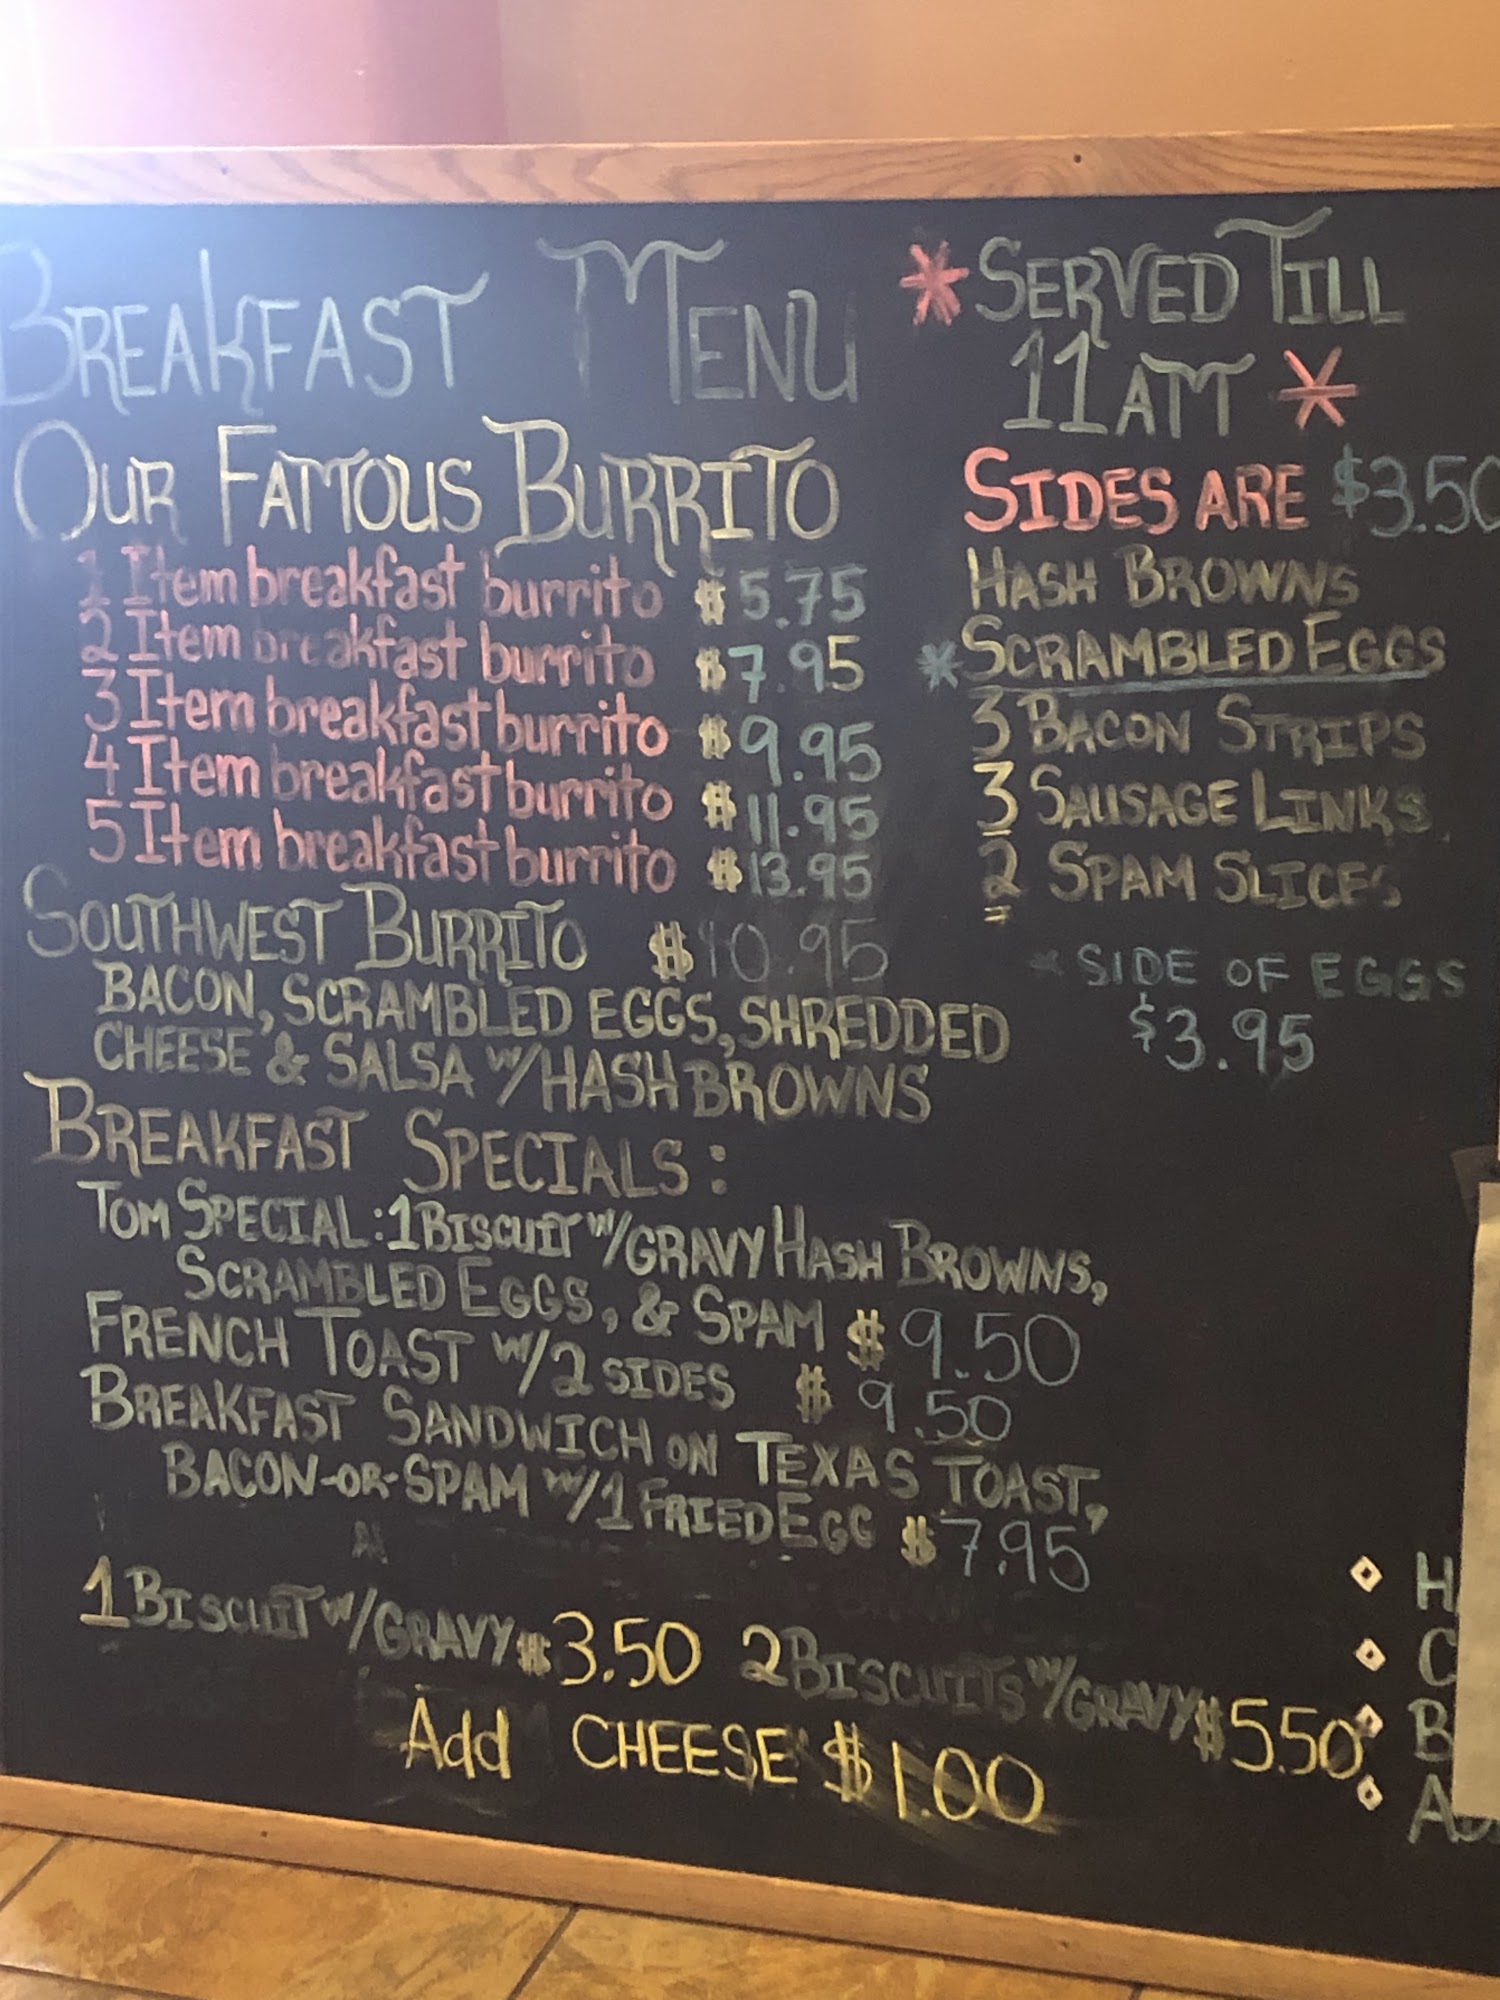 BREAKFAST MENU
OUR FAMOUS BURRITO
1 Item breakfast burrito $5.75
2 Item breakfast burrito $7.95
3 Item breakfast burrito $9.95
4 Item breakfast burrito $11.95
5 Item breakfast burrito $13.95
SOUTHWEST BURRITO $10.95
BACON, SCRAMBLED EGGS, SHREDDED
CHEESE & SALSA W/HASH BROWNS
BREAKFAST SPECIALS:
TOM SPECIAL: 1 BISCUIT W/GRAVY HASH BROWNS,
SCRAMBLED EGGS, & SPAM $9.50
FRENCH TOAST W/2 SIDES $9.50
BREAKFAST SANDWICH ON TEXAS TOAST,
BACON-OR-SPAM W/1 FRIED EGG $7.95
1 BISCUIT W/GRAVY $3.50 2 BISCUITS W/GRAVY $5.50
Add CHEESE $1.00
*SERVED TILL
11 AM *
SIDES ARE $3.50
HASH BROWNS
*SCRAMBLED EGGS
3 BACON STRIPS
3 SAUSAGE LINKS
2 SPAM SLICES
* SIDE OF EGGS
$3.95
H
C
B
A